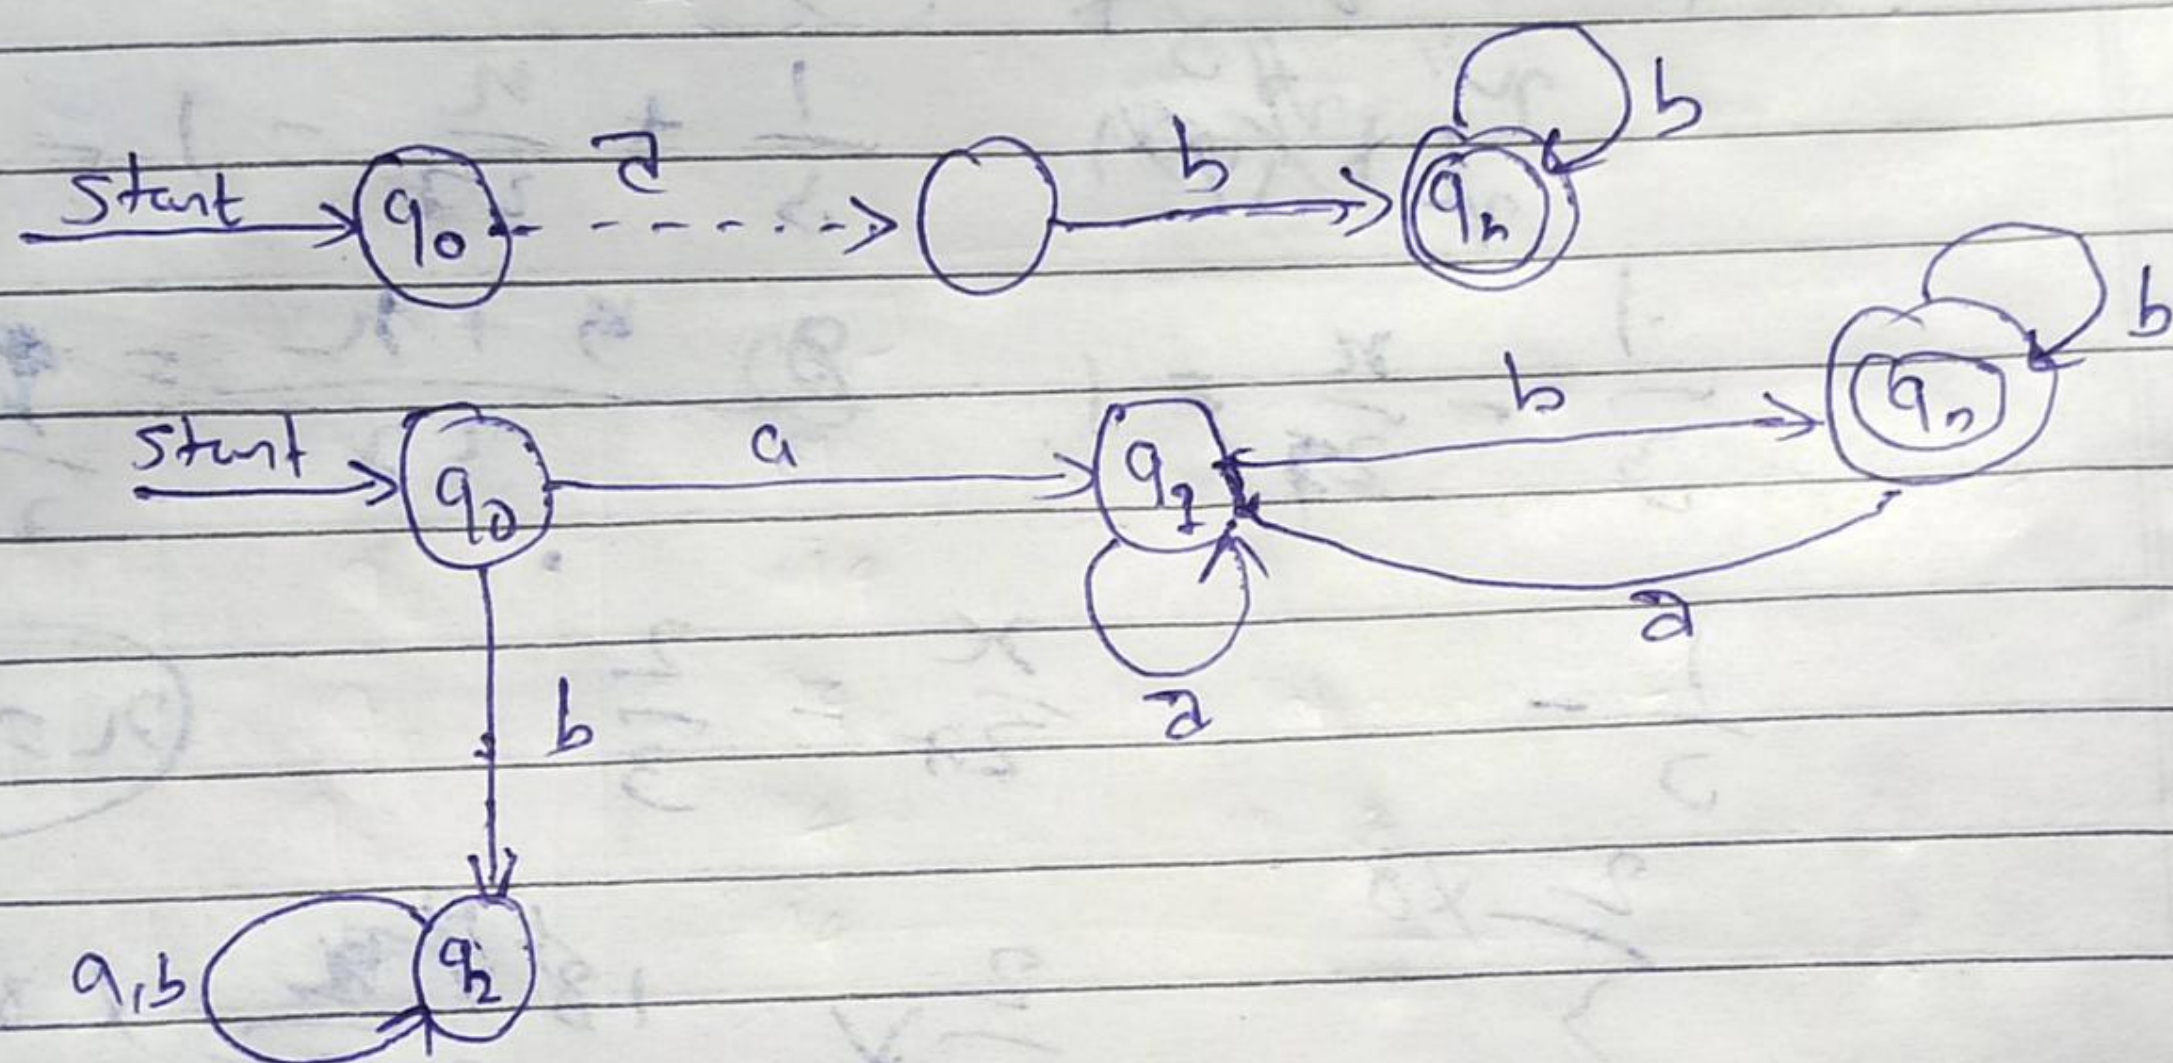 Start q0 a b qn b
Start q0 a q1 b qn b
a a
b
a,b q2